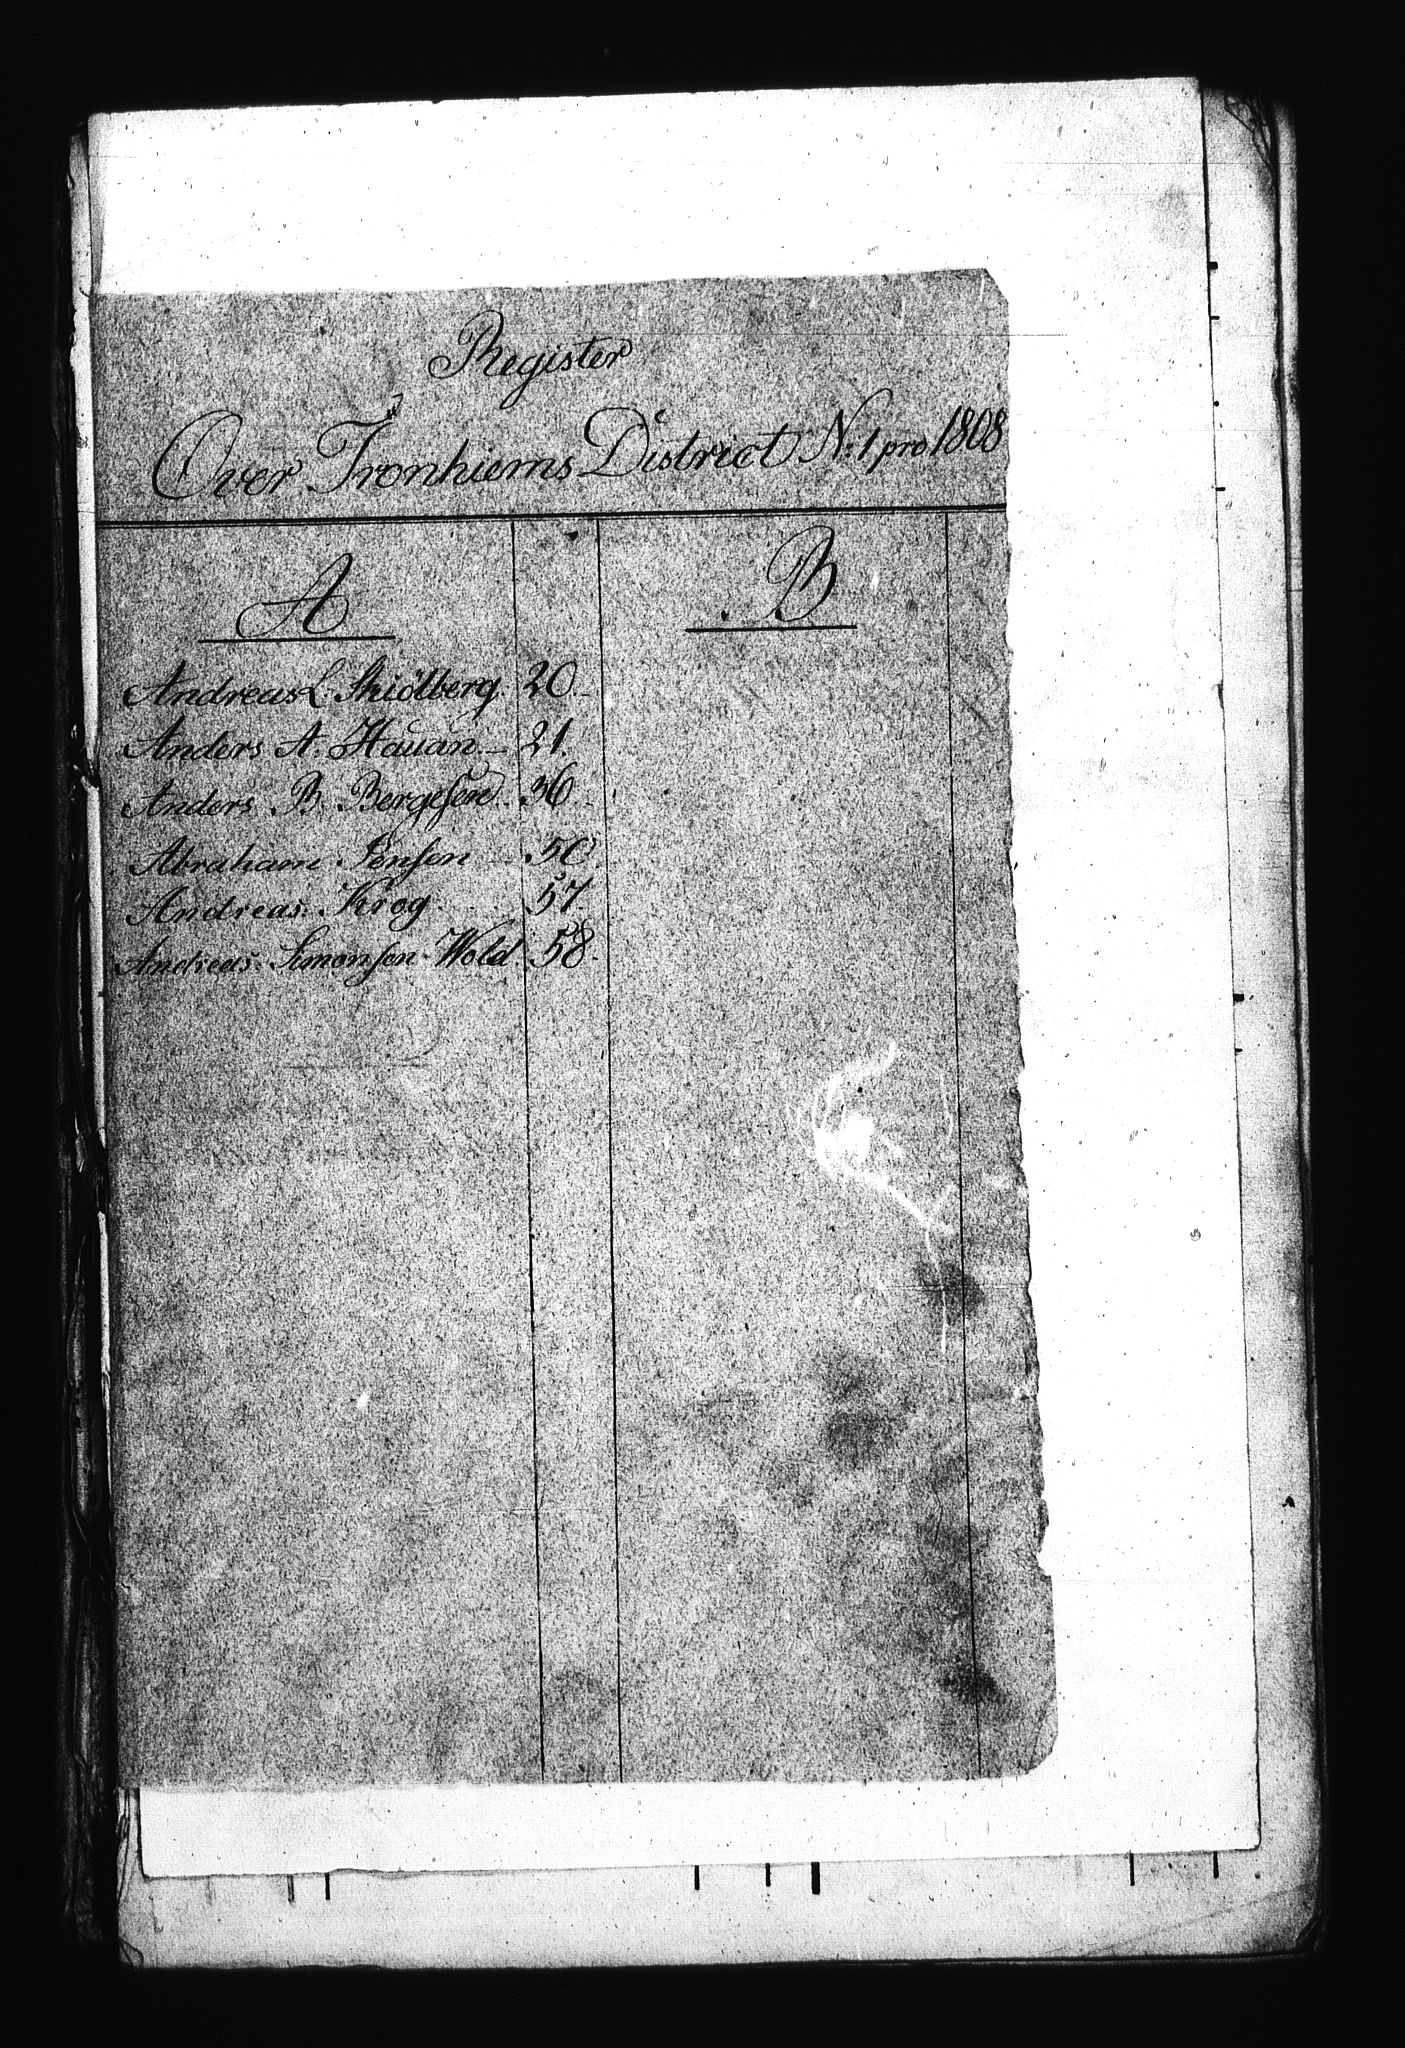 Register
Over Tronhiems District N: 1 pro 1808
A
Andreas L. Skiölberg. 20.
Anders A. Hauan. 21.
Anders B. Bergesen. 36.
Abraham Jensen 50.
Andreas Krog. 57.
Andreas Simonsen Wold 58.
B